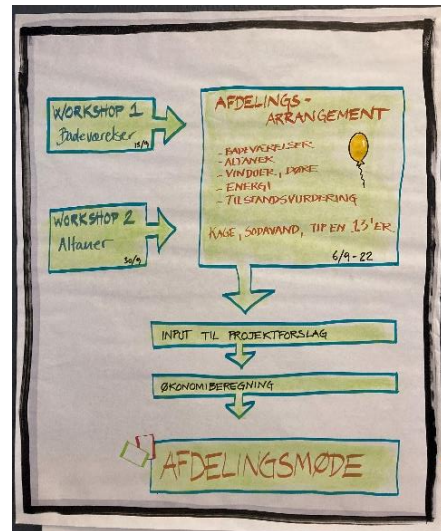 WORKSHOP 1
Badeværelser
15/9
WORKSHOP 2
Altaner
30/9
AFDELINGS-
ARRANGEMENT
- BADEVÆRELSER
- ALTANER
- VINDUER, DØRE
- ENERGI
- TILSTANDSVURDERING
KAGE, SODAVAND, TIP EN 13'ER
6/9-22
INPUT TIL PROJEKTFORSLAG
ØKONOMIBEREGNING
AFDELINGSMØDE